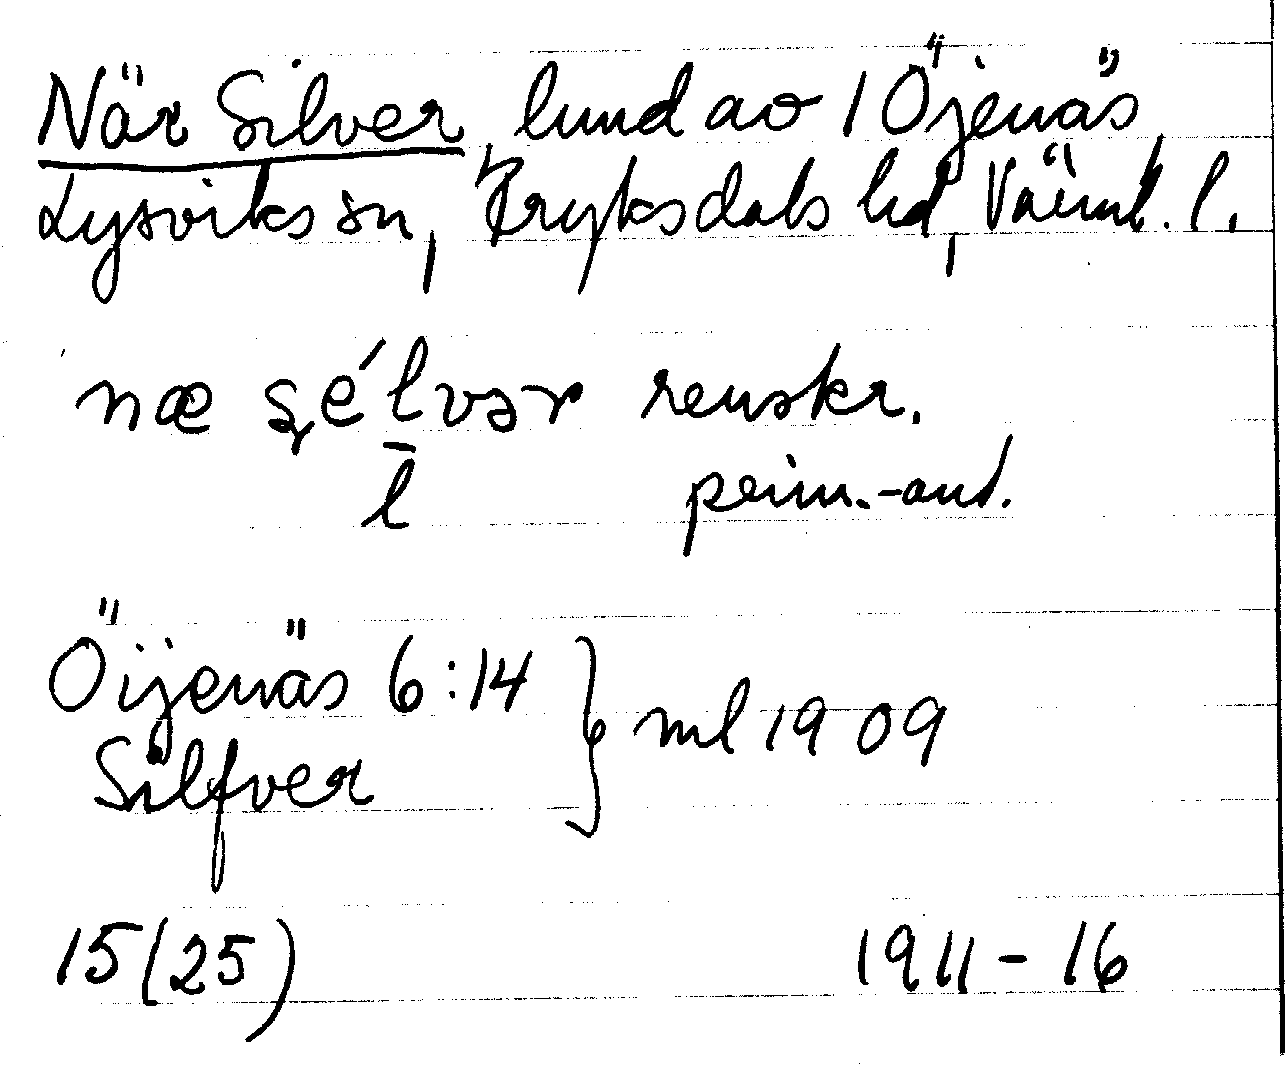 När Silver, lund av 1 Öjenäs,
Lysviks sn, Fryksdals hd, Värml. l.
næ sélvər renskr.
l̄ prim.-ant.
Öijenäs 6:14 } ml 1909
Silfver
15(25) 1911-16